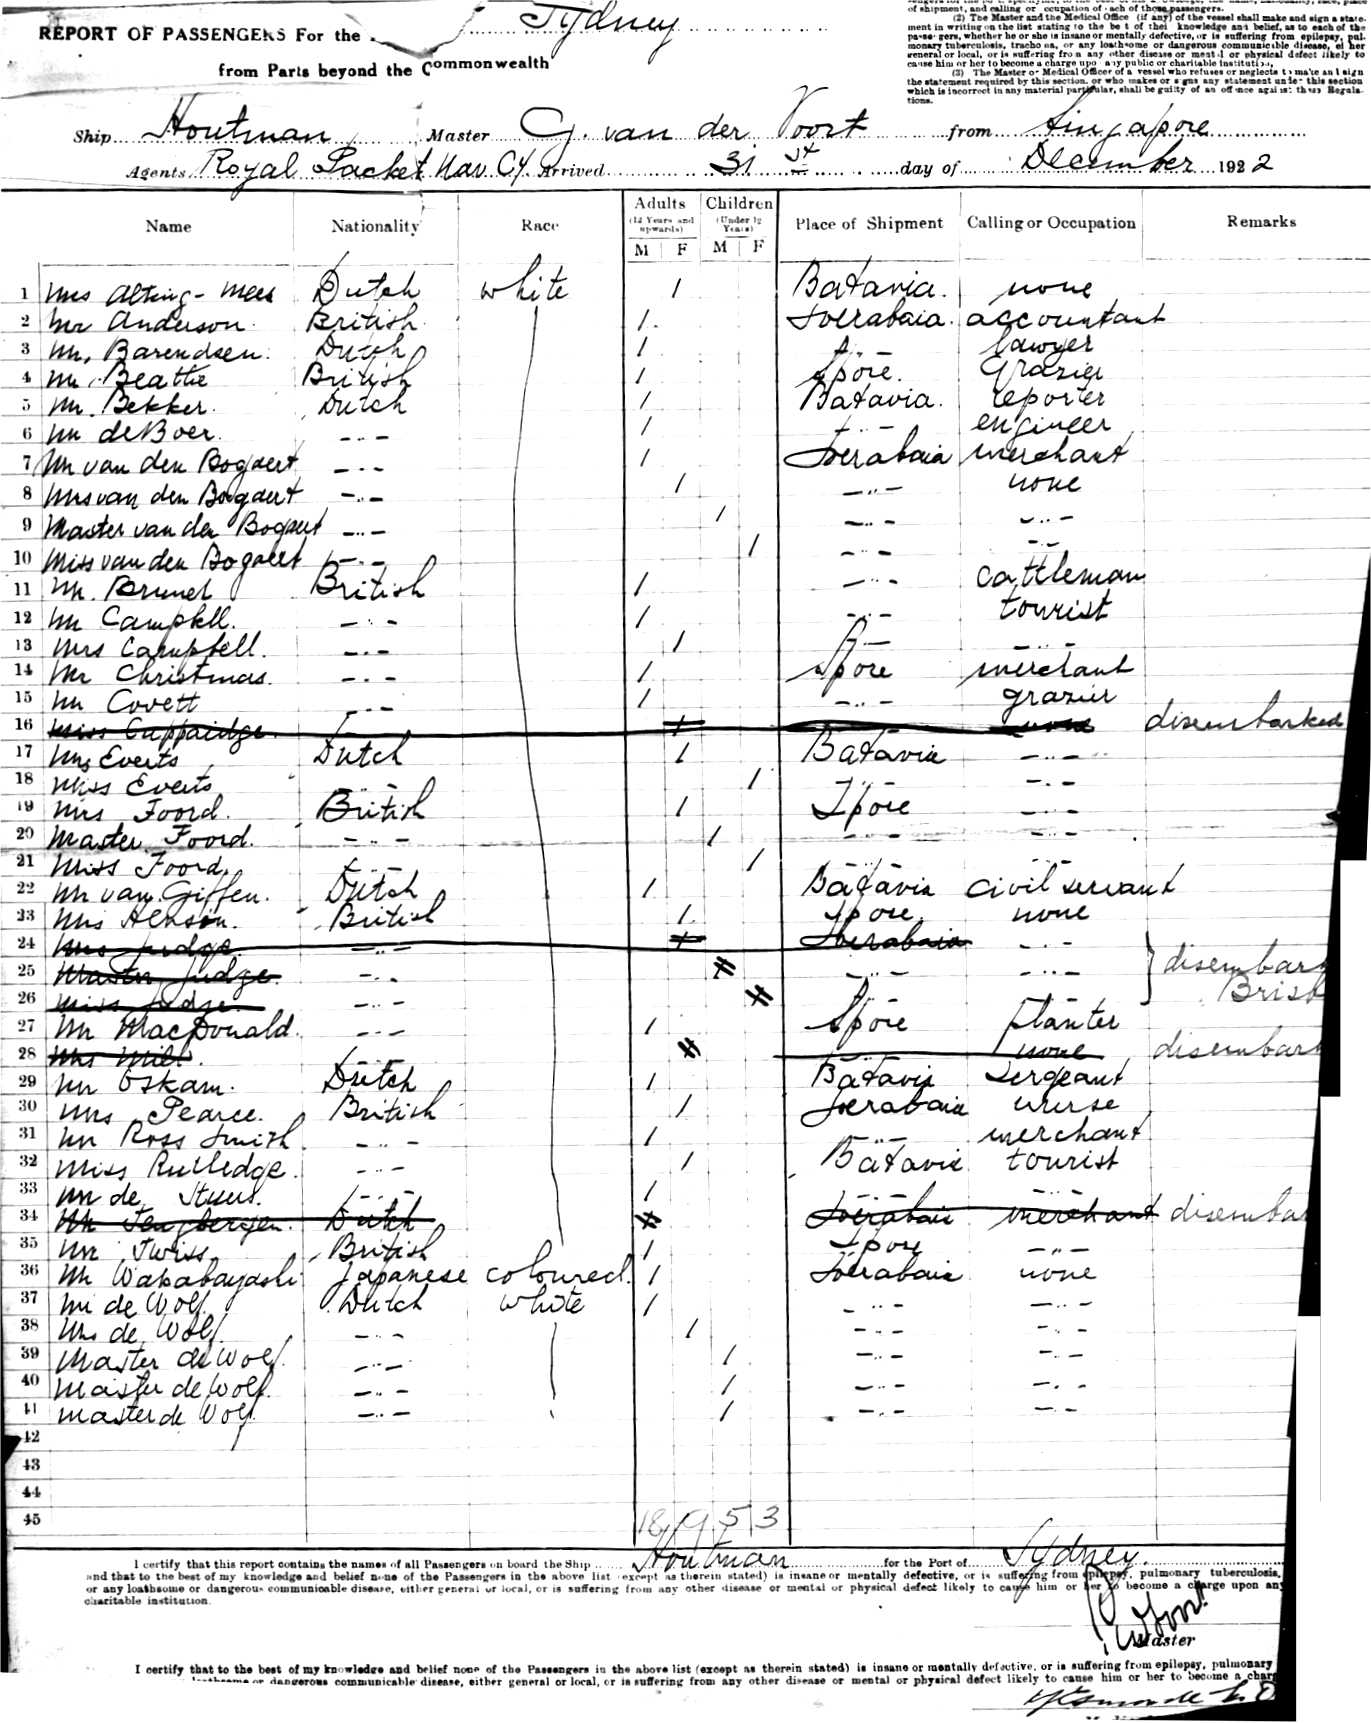 REPORT OF PASSENGERS For the Sydney
from Parts beyond the Commonwealth
of shipment, and calling or occupation of each of those passengers.
(2) The Master and the Medical Office (if any) of the vessel shall make and sign a state-
ment in writing on the list stating to the best of their knowledge and belief, as to each of the
passengers, whether he or she is insane or mentally defective, or is suffering from epilepsy, pul-
monary tuberculosis, trachoma, or any loathsome or dangerous communicable disease, either
general or local, or is suffering from any other disease or mental or physical defect likely to
cause him or her to become a charge upon any public or charitable institution.
(3) The Master or Medical Officer of a vessel who refuses or neglects to make and sign
the statement required by this section, or who makes or signs any statement under this section
which is incorrect in any material particular, shall be guilty of an offence against these Regula-
tions.
Ship Houtman Master G. van der Voort from Singapore
Agents Royal Packet Nav. Cy. Arrived 31 st day of December 1922
Name Nationality Race Adults (12 Years and upwards) M F Children (Under 12 Years) M F Place of Shipment Calling or Occupation Remarks
1 Mrs Alting-Mees Dutch white 1 Batavia. none
2 Mr Anderson. British 1 Soerabaia. accountant
3 Mr. Barendsen. Dutch 1 -"- lawyer
4 Mr. Beattie British 1 Spore. grazier
5 Mr. Bekker. Dutch 1 Batavia. reporter
6 Mr de Boer. -"- 1 -"- engineer
7 Mr van den Bogaert -"- 1 Soerabaia merchant
8 Mrs van den Bogaert -"- 1 -"- none
9 Master van den Bogaert -"- 1 -"- -"-
10 Miss van den Bogaert -"- 1 -"- -"-
11 Mr. Brunel British 1 -"- cattleman
12 Mr Campbell. -"- 1 -"- tourist
13 Mrs Campbell. -"- 1 -"- -"-
14 Mr Christmas. -"- 1 Spore merchant
15 Mr Covett -"- 1 -"- grazier
16 Miss Cappaidge. 1 none disembarked
17 Mrs Everts Dutch 1 Batavia -"-
18 Miss Everts -"- 1 -"- -"-
19 Mrs Foord. British 1 Spore -"-
20 Master Foord. -"- 1 -"- -"-
21 Miss Foord. -"- 1 -"- -"-
22 Mr van Giffen. Dutch 1 Batavia civil servant
23 Mrs British 1 Spore. none
24 Mrs Judge. -"- 1 Soerabaia -"-
25 Master Judge. -"- 1 -"- -"- disembar
26 Miss Judge. -"- 1 -"- -"- Brisb
27 Mr MacDonald. -"- 1 Spore planter
28 Mrs Mill. -"- 1 none disembar
29 Mr Oskam. Dutch 1 Batavia sergeant
30 Mrs Pearce. British 1 Soerabaia nurse
31 Mr Ross Smith -"- 1 -"- merchant
32 Miss Rutledge. -"- 1 Batavia tourist
33 Mr de Stuers. -"- 1 -"- -"-
34 Mr Tengbergen. Dutch 1 Soerabaia merchant disembar
35 Mr Twiss British 1 Spore -"-
36 Mr Wakabayashi Japanese coloured. 1 Soerabaia none
37 Mr de Wolf. Dutch white 1 -"- -"-
38 Mrs de Wolf. -"- 1 -"- -"-
39 Master de Wolf. -"- 1 -"- -"-
40 Master de Wolf. -"- 1 -"- -"-
41 Master de Wolf. -"- 1 -"- -"-
42
43
44
45
18 9 5 3
I certify that this report contains the names of all Passengers on board the Ship Houtman for the Port of Sydney.
and that to the best of my knowledge and belief none of the Passengers in the above list (except as therein stated) is insane or mentally defective, or is suffering from epilepsy, pulmonary tuberculosis,
or any loathsome or dangerous communicable disease, either general or local, or is suffering from any other disease or mental or physical defect likely to cause him or her to become a charge upon any
charitable institution.
Master
I certify that to the best of my knowledge and belief none of the Passengers in the above list (except as therein stated) is insane or mentally defective, or is suffering from epilepsy, pulmonary
loathsome or dangerous communicable disease, either general or local, or is suffering from any other disease or mental or physical defect likely to cause him or her to become a charg